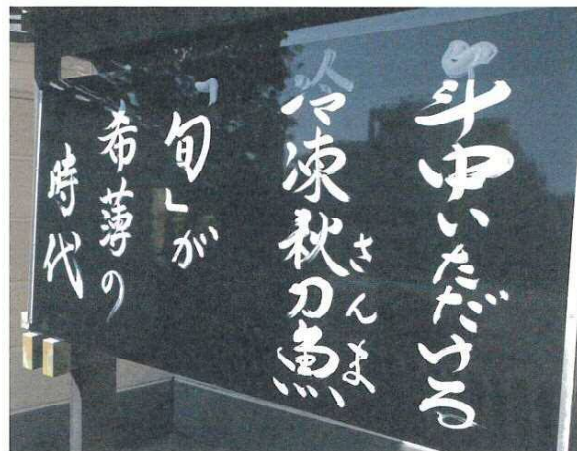 年中いただける
冷凍秋刀魚
さんま
「旬」が
希薄の
時代